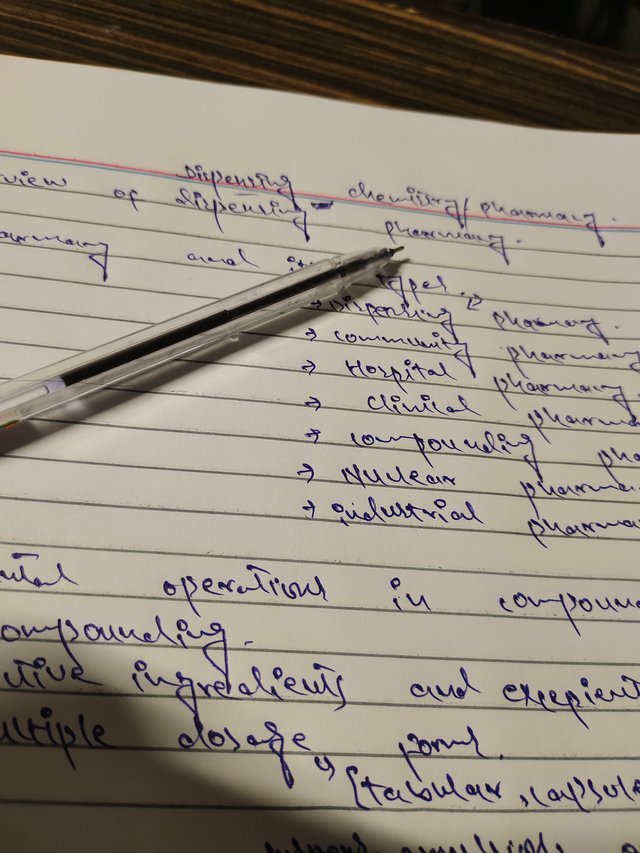 Dispensing chemistry/pharmacy.
view of dispensing pharmacy.
armacy and its types.
→ Dispensing pharmacy.
→ community pharmacy
→ Hospital pharmacy
→ clinical pharma
→ compounding pha
→ Nuclear pharma
→ industrial pharma
ntal operations in compoun
ompounding.
ctive ingredients and excepient
ultiple dosage forms.
↳ [tabular, capsule